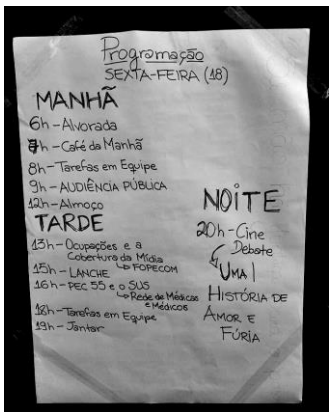 Programação
SEXTA-FEIRA (18)
MANHÃ
6h - Alvorada
7h - Café da Manhã
8h - Tarefas em Equipe
9h - AUDIÊNCIA PÚBLICA
12h - Almoço
TARDE
13h - Ocupações e a
Cobertura da Mídia
↳ FOPECOM
15h - LANCHE
16h - PEC 55 e o SUS
↳ Rede de Médicas
e Médicos
18h - Tarefas em Equipe
19h - Jantar
NOITE
20h - Cine
Debate
UMA
HISTÓRIA DE
AMOR E
FÚRIA